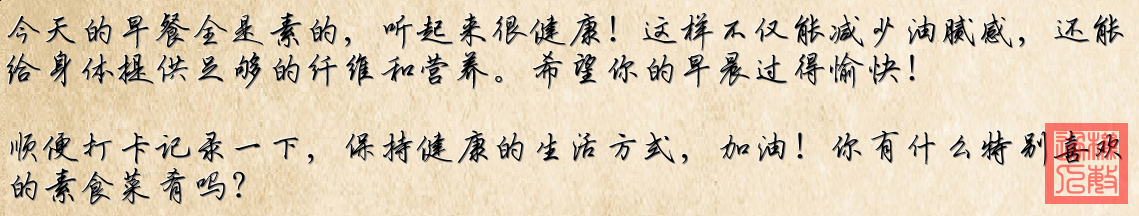 今天的早餐全是素的，听起来很健康！这样不仅能减少油腻感，还能
给身体提供足够的纤维和营养。希望你的早晨过得愉快！
顺便打卡记录一下，保持健康的生活方式，加油！你有什么特别喜欢
的素食菜肴吗？